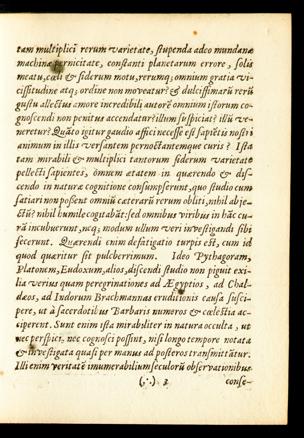 tam multiplici rerum varietate, stupenda adeo mundanæ
machinæ pernicitate, constanti planetarum errore, solis
meatu, cœli & siderum motu, rerumq; omnium gratia vi-
cissitudine atq; ordine non moveatur? & dulcissimarũ rerũ
gustu allectus amore incredibili autorẽ omnium istorum co-
gnoscendi non penitus accendatur? illum suspiciat? illũ ve-
neretur? Quãto igitur gaudio affici necesse est sapiẽtis nostri
animum in illis versantem pernoctantemque curis? Ista
tam mirabili & multiplici tantorum siderum varietate
pellecti sapientes, omnem ætatem in quærendo & dis-
cendo in naturæ cognitione consumpserunt, quo studio cum
satiari non possent omniũ cæterarũ rerum obliti, nihil abje-
ctũ? nihil humile cogitabãt: sed omnibus viribus in hãc cu-
rã incubuerunt, neq; modum ullum veri investigandi sibi
fecerunt. Quærendi enim defatigatio turpis est, cum id
quod quæritur sit pulcherrimum. Ideo Pythagoram,
Platonem, Eudoxum, alios, discendi studio non piguit exi-
lia verius quam peregrinationes ad Ægyptios, ad Chal-
dæos, ad Indorum Brachmannas eruditionis causa susci-
pere, ut à sacerdotibus Barbaris numeros & cœlestia ac-
ciperent. Sunt enim ista mirabiliter in natura occulta, ut
nec perspici, nec cognosci possint, nisi longo tempore notata
& investigata quasi per manus ad posteros transmittãtur.
Illi enim veritatẽ innumerabilium seculorũ observationibus
(∴) 3 conse-